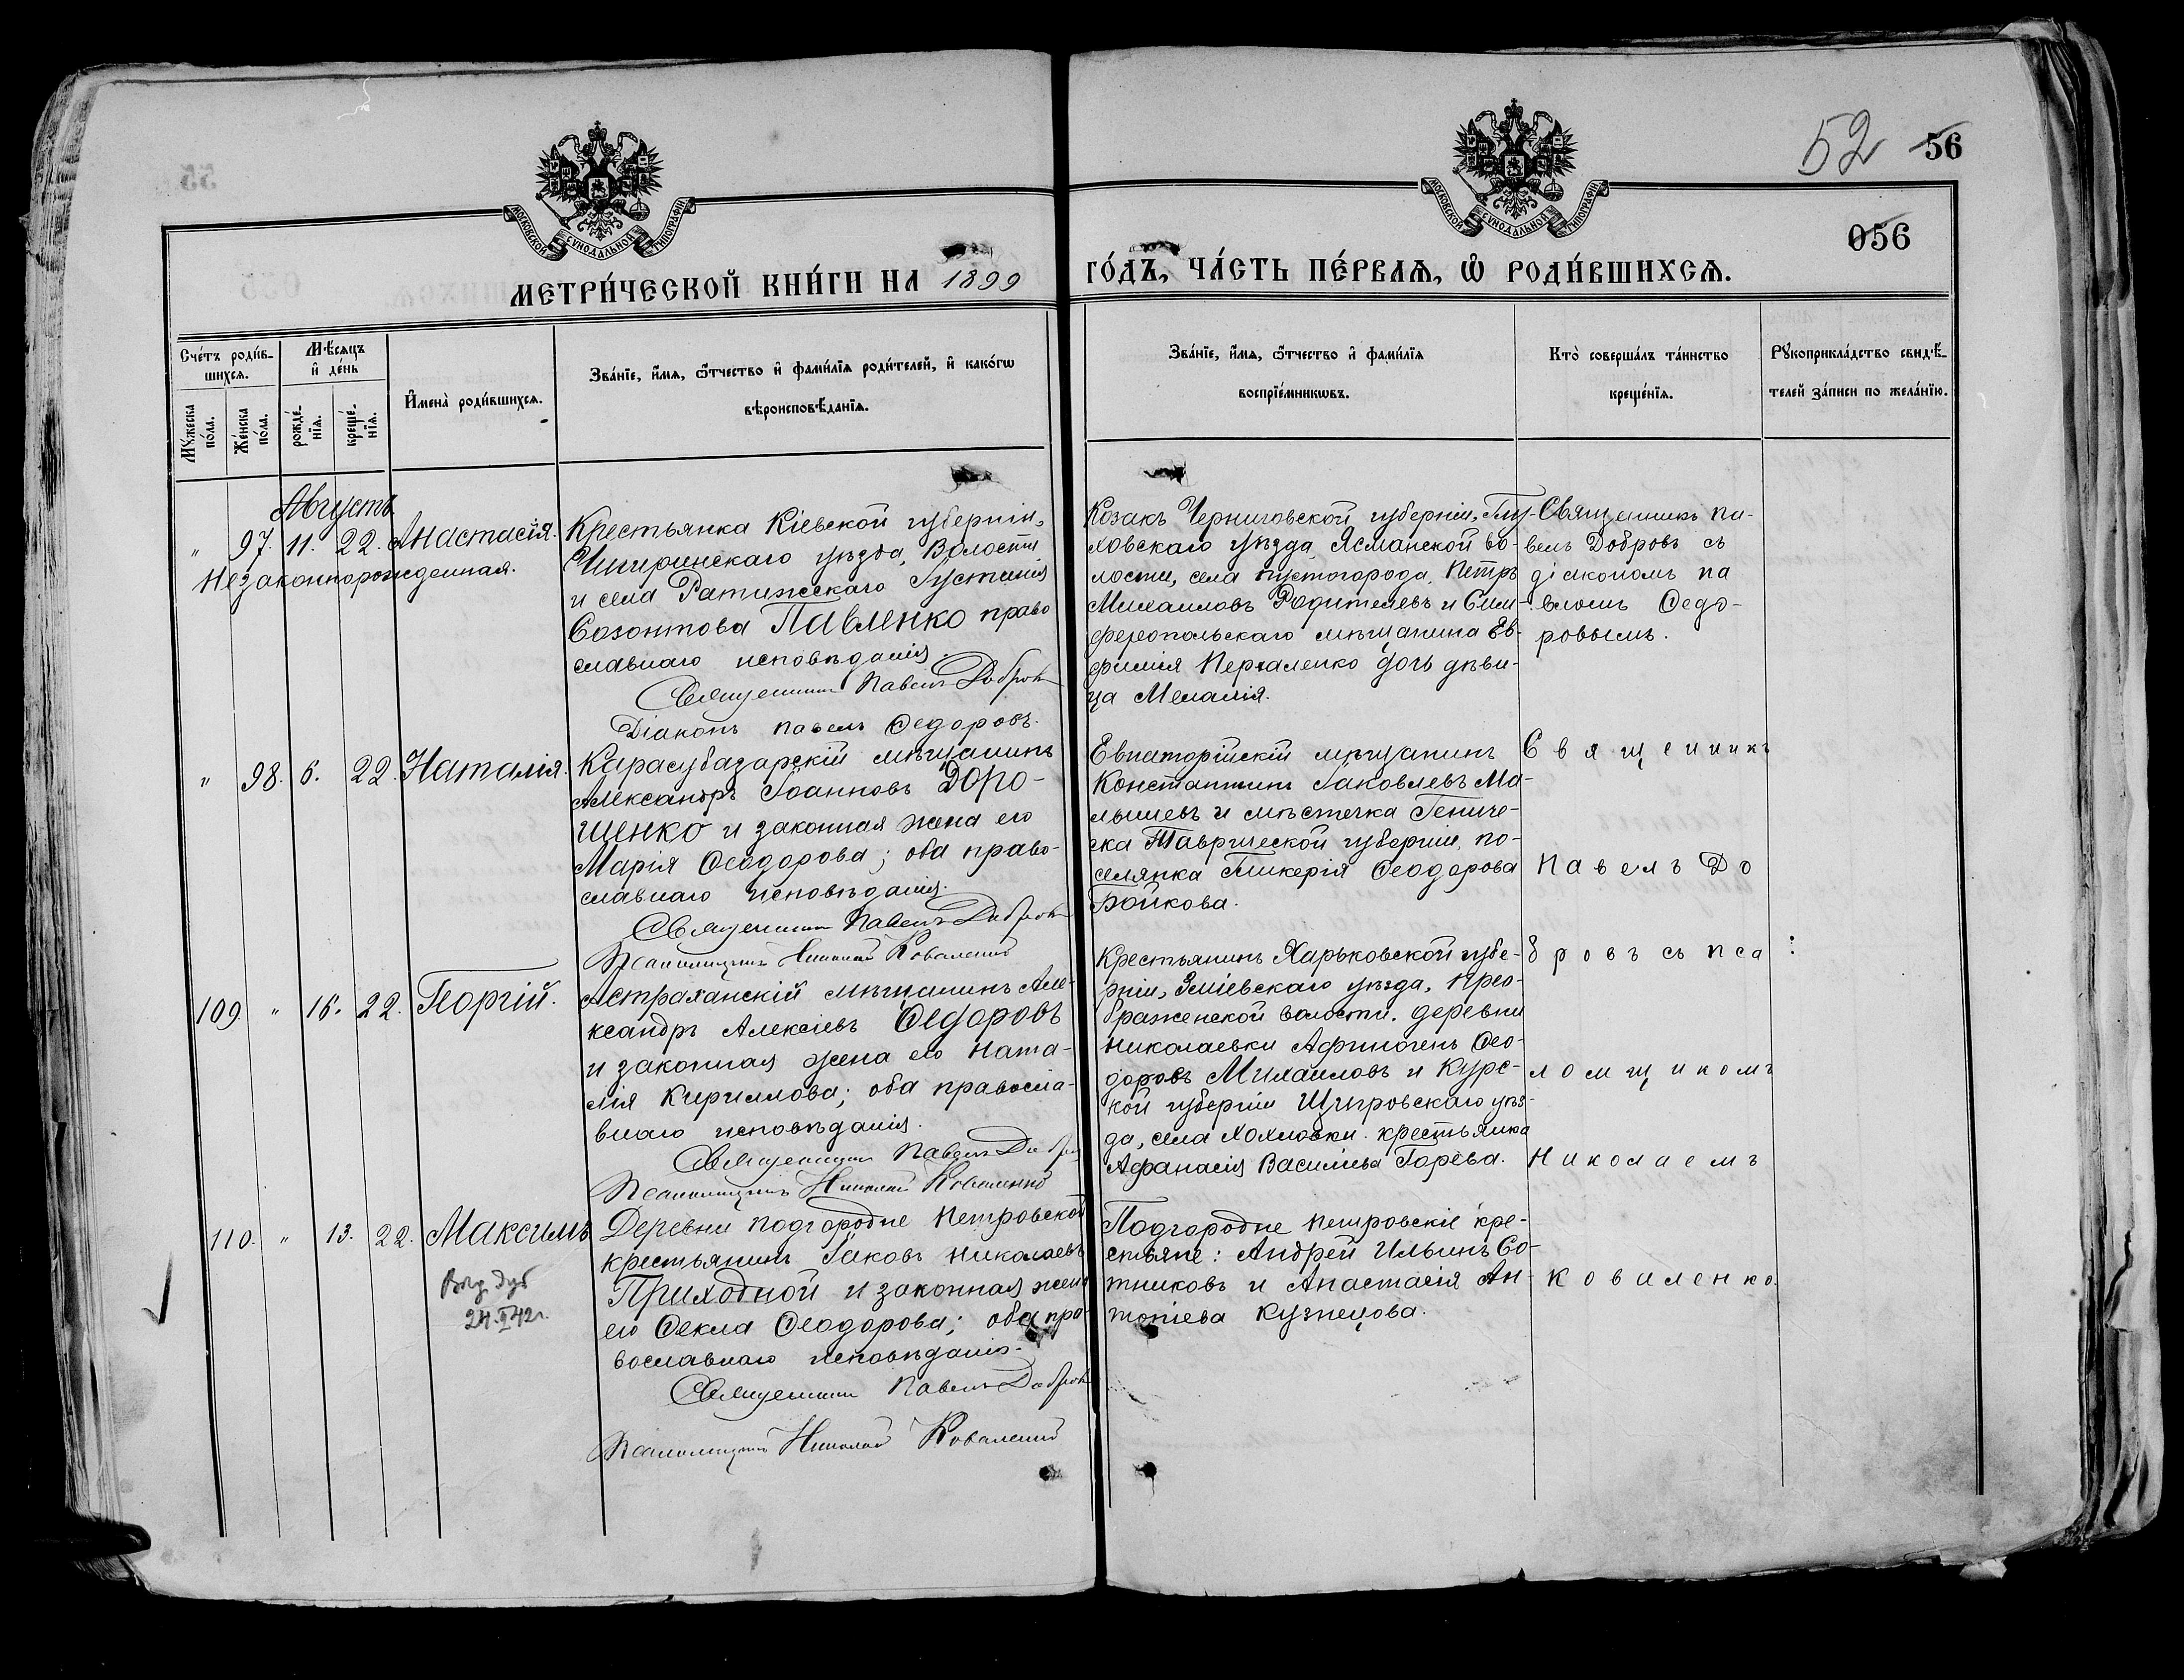 52 56
056
МОСКОВСКОЙ СѴНОДАЛЬНОЙ ТИПОГРАФІИ
МОСКОВСКОЙ СѴНОДАЛЬНОЙ ТИПОГРАФІИ
МЕТРИ́ЧЕСКОЙ КНИ́ГИ НА 1899 ГО́ДЪ, ЧА́СТЬ ПЕ́РВАѦ, Ѡ҆ РОДИ́ВШИХСѦ.
Сче́тъ роди́в-
шихсѧ.
Мꙋ́жеска
по́ла.
Же́нска
по́ла.
Мѣ́сѧцъ
и҆ де́нь
рожде́-
нїѧ.
креще́-
нїѧ.
И҆мена̀ роди́вшихсѧ.
Зва́нїе, и҆́мѧ, ѻ҆́тчество и҆ фами́лїѧ роди́телей, и҆ како́гѡ
вѣроисповѣ́данїѧ.
Зва́нїе, и҆́мѧ, ѻ҆́тчество и҆ фами́лїѧ
воспрїе́мникѡвъ.
Кто̀ соверша́лъ та́инство
креще́нїѧ.
Рꙋкоприкла́дство свидѣ́-
телей за́писи по жела́нїю.
Августъ
" 97. 11. 22. Анастасія.
Незаконнорожденная.
Крестьянка Кіевской губерніи,
Чигиринскаго уѣзда, Волости
и села Ратижскаго Іустинія
Созонтова Павленко право
славнаго исповѣданія.
Священникъ Павелъ Добровъ
Діаконъ Павелъ Ѳедоровъ.
Козакъ Черниговской губерніи, Глу-
ховскаго уѣзда, Ясманской во-
лости, села пустогорода, Петръ
Михаиловъ Родителевъ и Сим-
феропольскаго мѣщанина Ев-
фимія Перхаленко дочь дѣви-
ца Меланія.
Священникъ Па-
велъ Добровъ съ
діакономъ Па
вломъ Ѳедо-
ровымъ.
" 98. 6. 22. Наталія.
Карасубазарскій мѣщанинъ
Александръ Іоанновъ Доро-
шенко и законная жена его
Марія Ѳеодорова; оба право-
славнаго исповѣданія.
Священникъ Павелъ Добровъ
Псаломщикъ Николай Коваленко
Евпаторійскій мѣщанинъ
Константинъ Іаковлевъ Ма-
лышевъ и мѣстечка Гениче-
ска Таврической губерніи, по-
селянка Гликерія Ѳеодорова
Бойкова.
Священникъ
Павелъ До
бровъ съ пса
ломщикомъ
Николаемъ
Коваленко.
109. " 16. 22. Георгій.
Астраханскій мѣщанинъ Але-
ксандръ Алексіевъ Ѳедоровъ
и законная жена его Ната-
лія Кириллова; оба правосла-
внаго исповѣданія.
Священникъ Павелъ Добровъ
Псаломщикъ Николай Коваленко
Крестьянинъ Харьковской губе-
рніи, Зміевскаго уѣзда, Прео-
браженской волости. деревни
Николаевки Афиногенъ Ѳео-
доровъ Михаиловъ и Курс-
кой губерніи Щигровскаго уѣз-
да, села Хохловки. крестьянка
Афанасія Васильева Горѣва.
110. " 13. 22. Максимъ
24.X 42г.
Деревни Подгородне Петровской
крестьянинъ Іаковъ Николаевъ
Приходной и законная жена
его Ѳекла Ѳеодорова; оба пра-
вославнаго исповѣданія.
Священникъ Павелъ Добровъ
Псаломщикъ Николай Коваленко
Подгородне Петровскіе кре-
стьяне: Андрей Ильинъ Со-
тниковъ и Анастасія Ан-
тоніева Кузнецова.